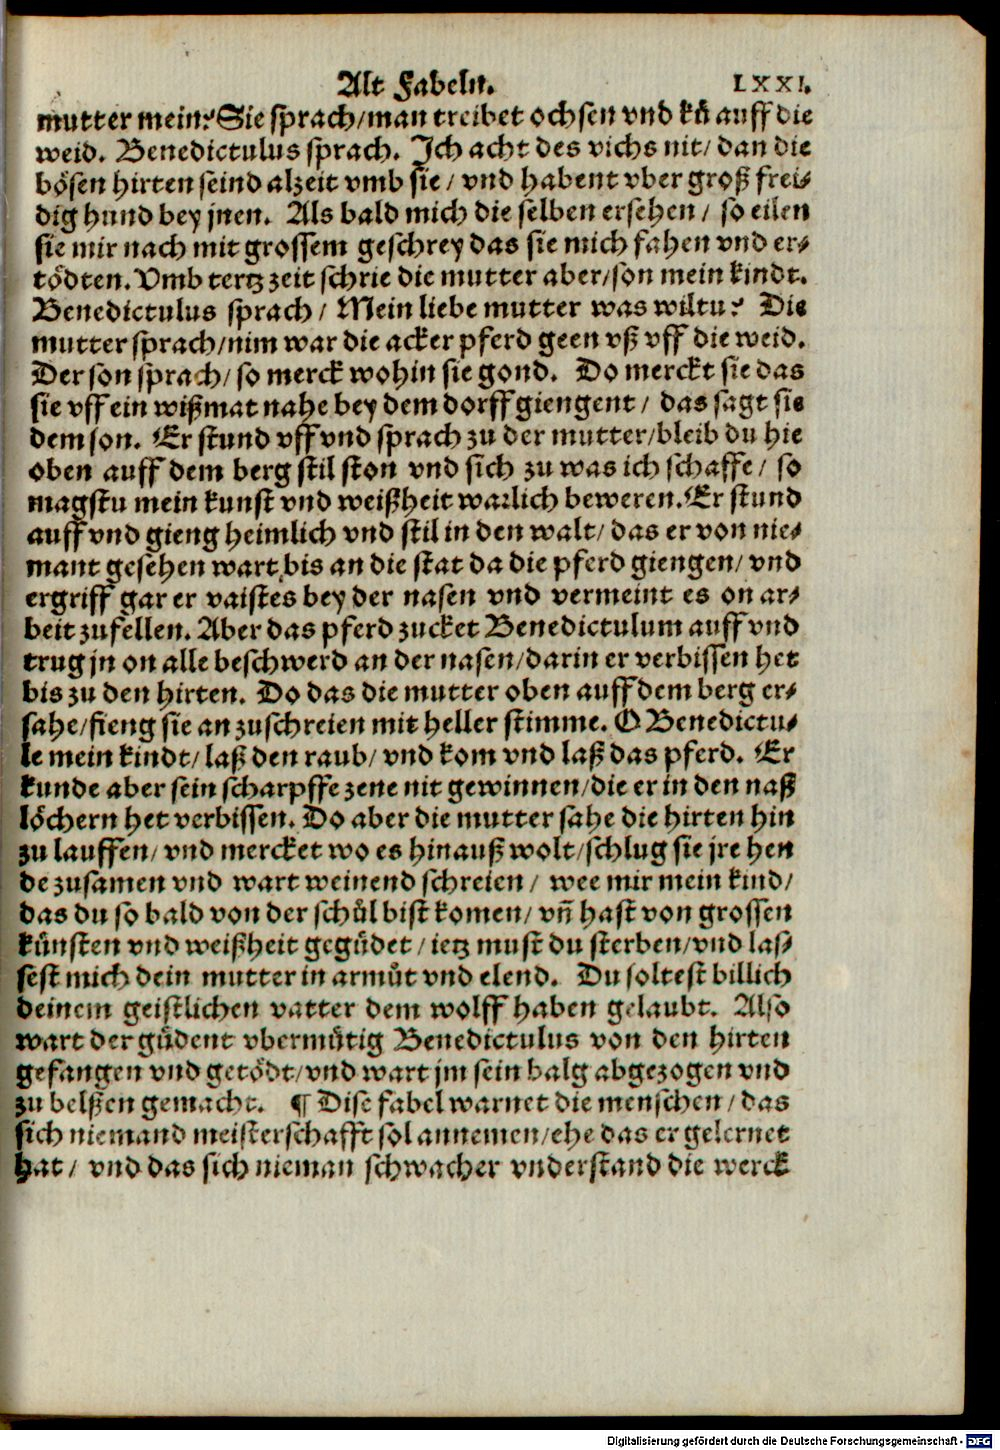 Alt Fabeln. LXXI.
mutter mein? Sie sprach/man treibet ochsen vnd ků auff die
weid. Benedictulus sprach. Ich acht des vichs nit/ dan die
bösen hirten seind alzeit vmb sie/ vnd habent vber groß frei⸗
dig hund bey jnen. Als bald mich die selben ersehen/ so eilen
sie mir nach mit grossem geschrey das sie mich fahen vnd er⸗
tödten. Vmb tertz zeit schrie die mutter aber/son mein kindt.
Benedictulus sprach/ Mein liebe mutter was wiltu? Die
mutter sprach/nim war die acker pferd geen vß vff die weid.
Der son sprach/ so merck wohin sie gond. Do merckt sie das
sie vff ein wißmat nahe bey dem dorff giengent/ das sagt sie
dem son. Er stund vff vnd sprach zu der mutter/bleib du hie
oben auff dem berg stil ston vnd sich zu was ich schaffe/ so
magstu mein kunst vnd weißheit warlich beweren. Er stund
auff vnd gieng heimlich vnd stil in den walt/ das er von nie⸗
mant gesehen wart, bis an die stat da die pferd giengen/ vnd
ergriff gar er vaistes bey der nasen vnd vermeint es on ar⸗
beit zufellen. Aber das pferd zucket Benedictulum auff vnd
trug jn on alle beschwerd an der nasen/darin er verbissen het
bis zu den hirten. Do das die mutter oben auff dem berg er⸗
sahe/fieng sie an zuschreien mit heller stimme. O Benedictu⸗
le mein kindt/ laß den raub/ vnd kom vnd laß das pferd. Er
kunde aber sein scharpffe zene nit gewinnen/die er in den naß
löchern het verbissen. Do aber die mutter sahe die hirten hin
zu lauffen/ vnd mercket wo es hinauß wolt/schlug sie jre hen
de zusamen vnd wart weinend schreien/ wee mir mein kind/
das du so bald von der schůl bist komen/ vñ hast von grossen
künsten vnd weißheit gegüdet/ietz must du sterben/vnd las⸗
sest mich dein mutter in armůt vnd elend. Du soltest billich
deinem geistlichen vatter dem wolff haben gelaubt. Also
wart der güdent vbermütig Benedictulus von den hirten
gefangen vnd getödt/vnd wart jm sein balg abgezogen vnd
zu belßen gemacht. ¶ Dise fabel warnet die menschen/ das
sich niemand meisterschafft sol annemen/ehe das er gelernet
hat/ vnd das sich nieman schwacher vnderstand die werck
Digitalisierung gefördert durch die Deutsche Forschungsgemeinschaft - DFG